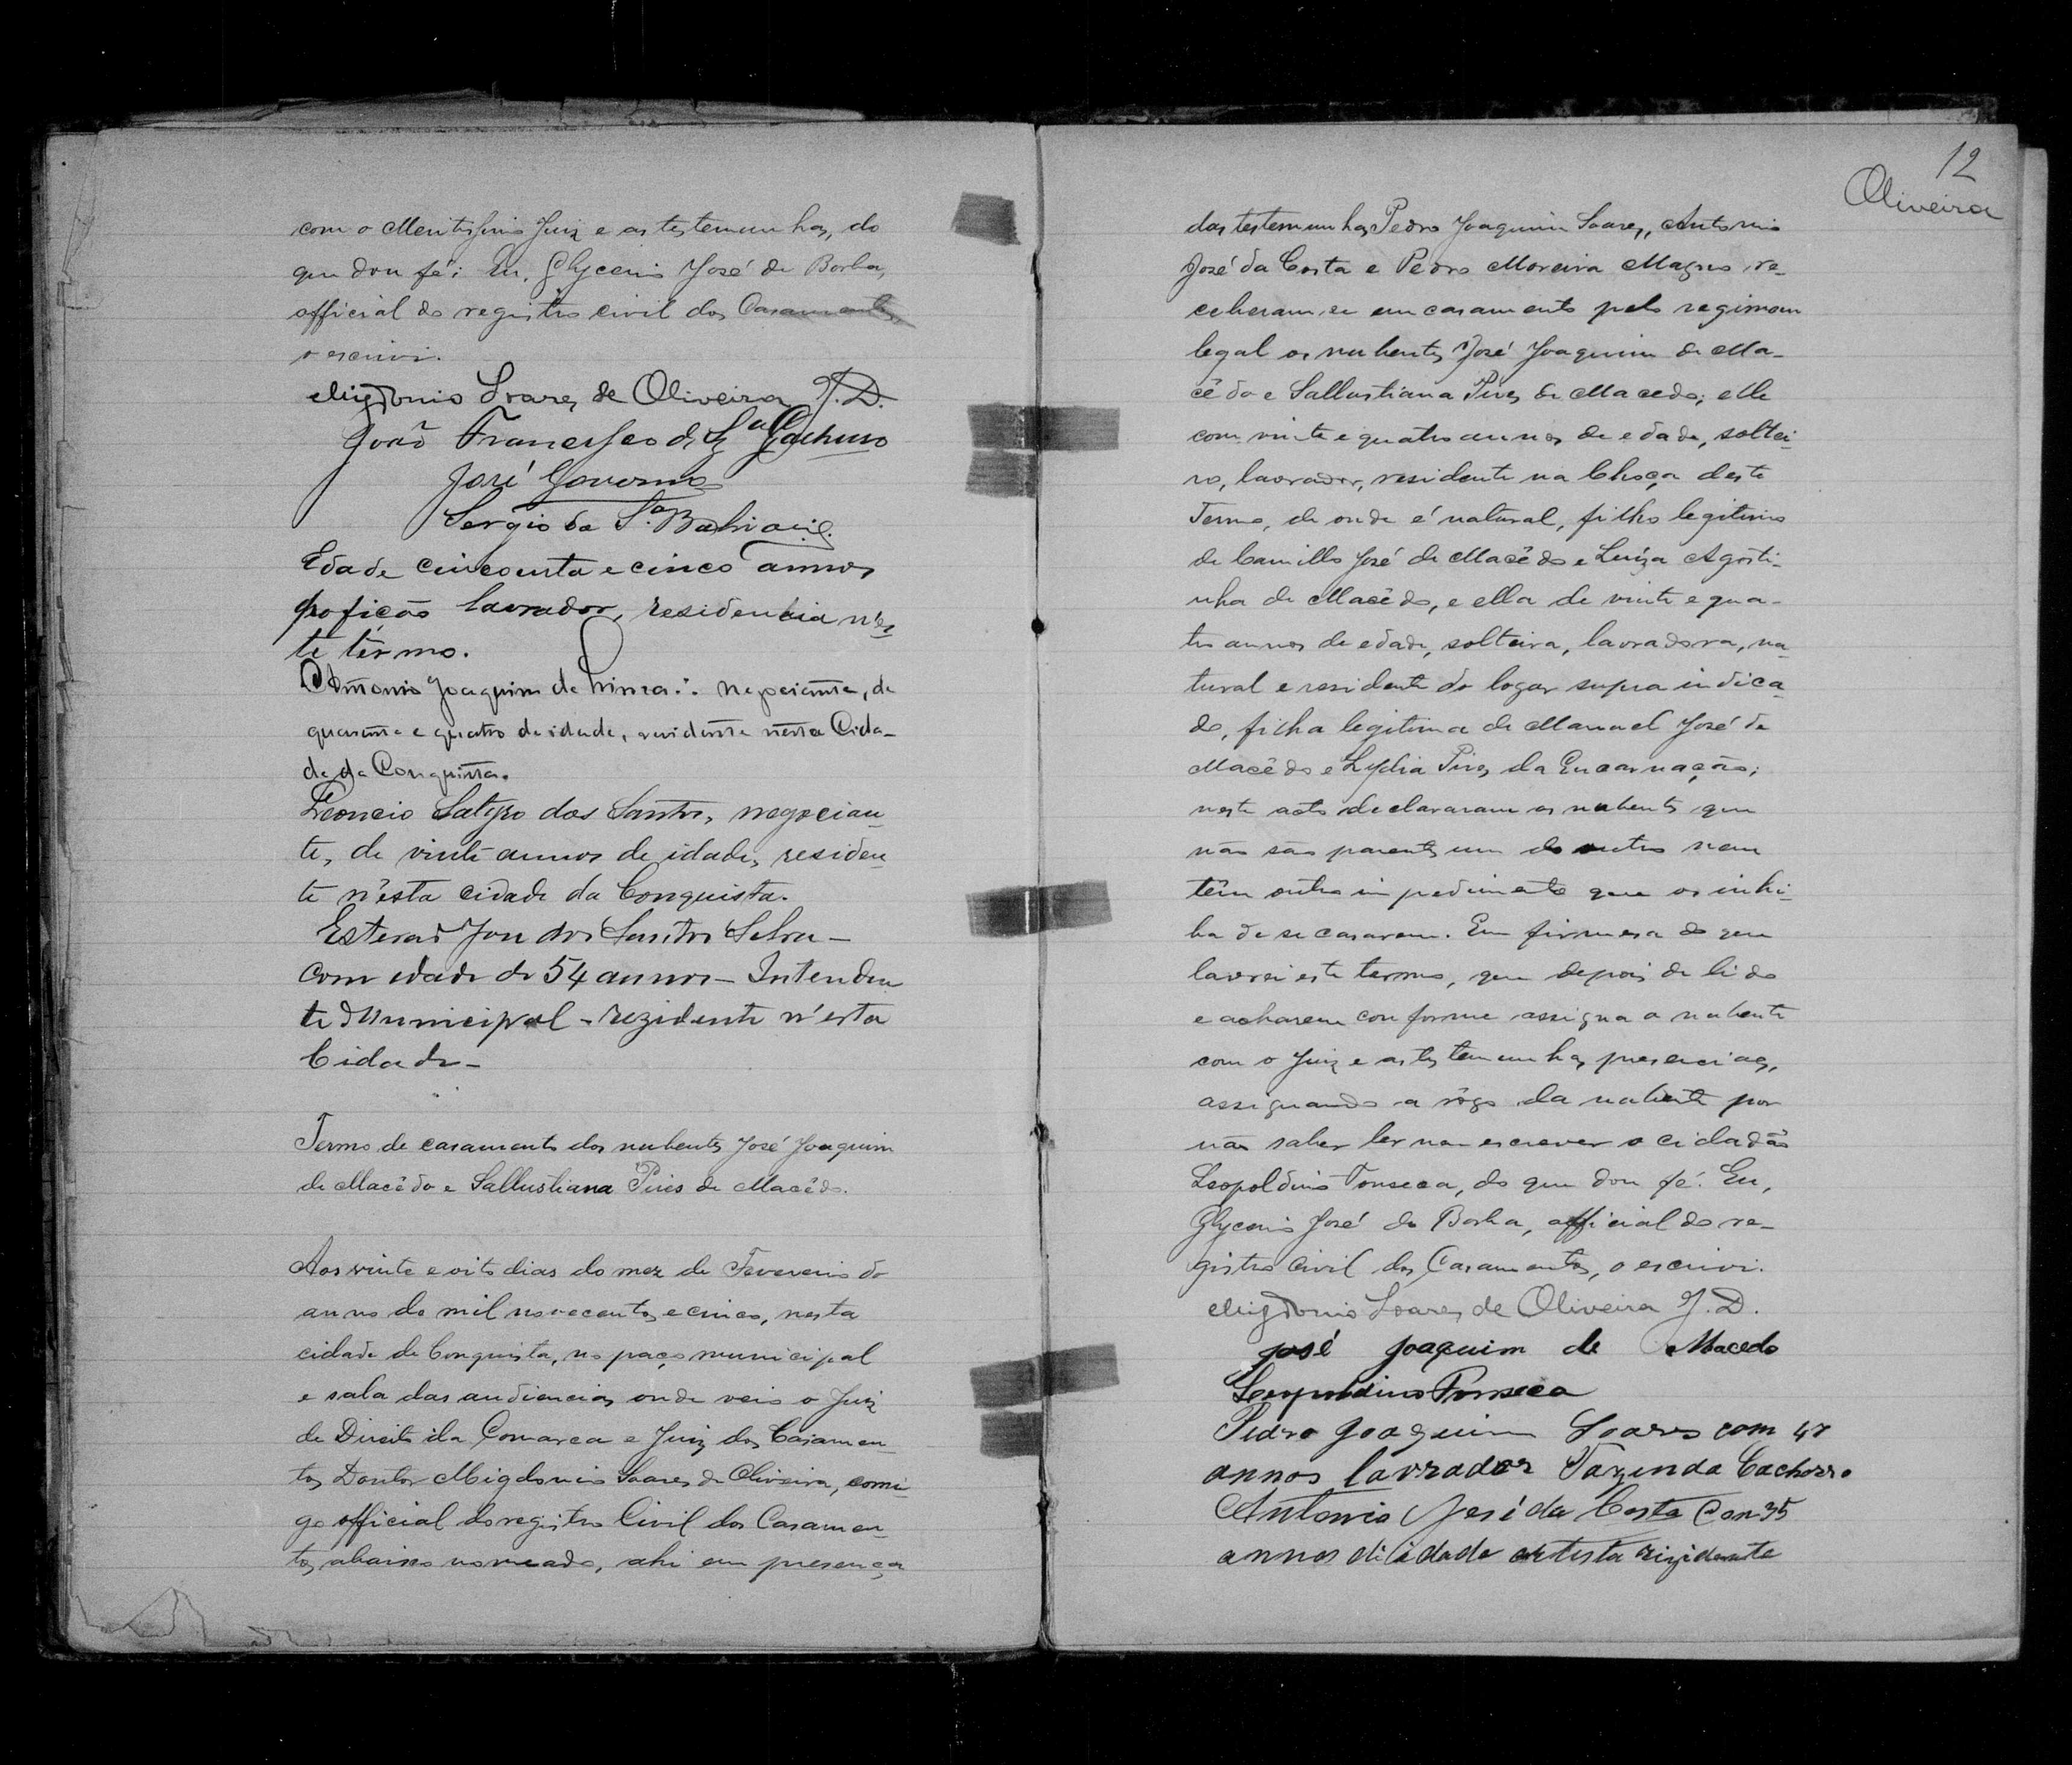 com o Meritissimo Juiz e as testemunhas, do
que dou fé; Eu, Glycerio José de Borba,
official do registro civil dos Casamentos
o escrivi.
Migdonio Soares de Oliveira J. D.
João Francisco de
José
Sergio da Sª
Edade cincoenta e cinco annos
proficão lavrador, residencia n'es
te têrmo.
Antonio Joaquim de Lima negociante, de
quarenta e quatro de idade, residente nesta Cida-
de da Conquista.
Leoncio Satyro dos Santos, negocian-
te, de vinte annos de idade, residen-
te n'esta cidade da Conquista.
Estevão José dos Santos Silva -
com idade de 54 annos - Intenden
te Municipal - rezidente n'esta
Cidade -
Termo de casamento dos nubentes José Joaquim
de Macêdo e Sallustiana Pires de Macêdo.
Aos vinte e oito dias do mez de Fevereiro do
anno de mil novecentos e cinco, nesta
cidade de Conquista, no paço municipal
e sala das audiencias onde veio o Juiz
de Direito da Comarca e Juiz dos Casamen-
tos Doutor Migdonio Soares de Oliveira, comi-
go official do registro Civil dos Casamen-
tos abaixo nomeado, ahi em presença
12
Oliveira
das testemunhas Pedro Joaquim Soares, Antonio
José da Costa e Pedro Moreira Magno re-
ceberam-se em casamento pelo regimem
legal os nubentes José Joaquim de Ma-
cêdo e Sallustiana Pires de Macedo; elle
com vinte e quatro annos de edade, soltei-
ro, lavrador, residente na Choça deste
Termo, de onde é natural, filho legitimo
de Camillo José de Macêdo e Luiza Agosti-
nha de Macêdo, e ella de vinte e qua-
tro annos de edade, solteira, lavradora, na-
tural e residente do logar supra indica-
do, filha legitima de Manuel José de
Macêdo e Lydia Pires da Encarnação;
neste acto declararam os nubentes que
não são parentes um do outro nem
têm outro impedimento que os inhi-
ba de se casarem. Em firmesa do que
lavrei este termo, que depois de lido
e acharem conforme assigna o nubente
com o Juiz e as testemunhas presenciaes,
assignando a rôgo da nubente por
não saber ler nem escrever o cidadão
Leopoldino Fonseca, do que dou fé. Eu,
Glycerio José de Borba, official do re-
gistro Civil dos Casamentos, o escrivi.
Migdonio Soares de Oliveira J. D.
José Joaquim de Macedo
Leopoldino Fonseca
Pedro Joaquim Soares com
annos lavrador Fazenda Cachorro
Antonio José da Costa Con 35
annos di idade artista rizidente